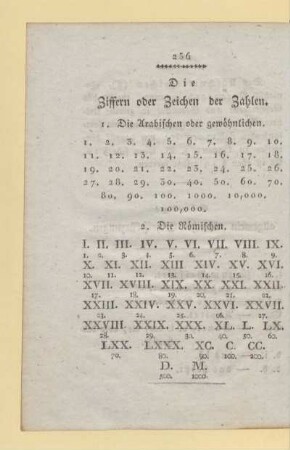 236
Die
Ziffern oder Zeichen der Zahlen.
1. Die Arabischen oder gewöhnlichen.
1. 2. 3. 4. 5. 6. 7. 8. 9. 10.
11. 12. 13. 14. 15. 16. 17. 18.
19. 20. 21. 22. 23. 24. 25. 26.
27. 28. 29. 30. 40. 50. 60. 70.
80, 90. 100. 1000. 10,000.
100,000.
2. Die Römischen.
I. II. III. IV. V. VI. VII. VIII. IX.
1. 2. 3. 4. 5. 6. 7. 8. 9.
X. XI. XII. XIII XIV. XV. XVI.
10. 11. 12. 13. 14. 15. 16.
XVII. XVIII. XIX, XX. XXI. XXII.
17. 18. 19. 20. 21. 22.
XXIII. XXIV. XXV. XXVI. XXVII.
23. 24. 25. 26. 27.
XXVIII. XXIX. XXX. XL. L. LX.
28. 29. 30. 40. 50. 60.
LXX. LXXX. XC. C. CC.
70. 80. 90. 100. — 200.
D. M.
500. 1000.